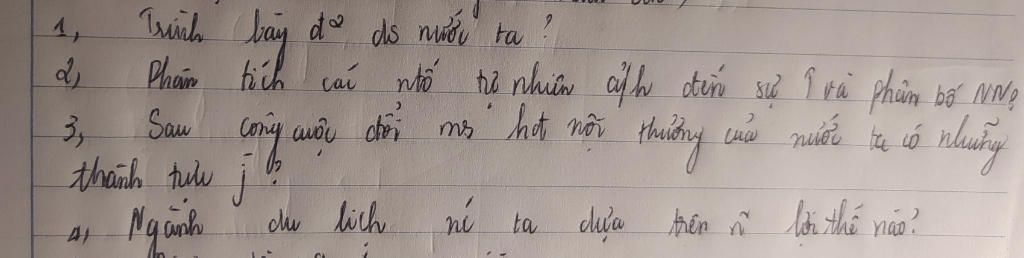 1, Trình bày đ² ds nước ta?
2, Phân tích các ntố tự nhiên ảh đến sự ↑ và phân bố NN?
3, Sau công cuộc đổi ms hđ nội thương của nước ta có những
thành tựu j?
4, Ngành du lịch nc ta dựa trên n~ lợi thế nào?